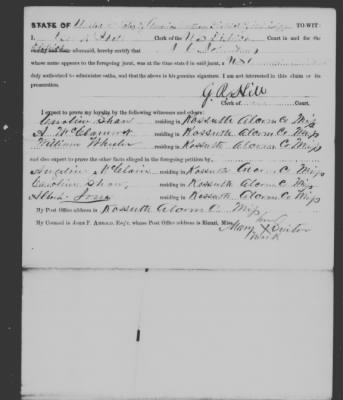 STATE OF TO-WIT:
I, Clerk of the U S Court in and for the
aforesaid, hereby certify that
whose name appears to the foregoing jurat, was at the time stated in said jurat, a
duly authorized to administer oaths, and that the above is his genuine signature. I am not interested in this claim or its
prosecution.
G. R. Hill
Clerk of Court.
I expect to prove my loyalty by the following witnesses and others:
Caroline Shaw residing in Kossuth Alcorn Co Miss
A. McClamrock residing in Kossuth Alcorn Co Miss
William Wheeler residing in Kossuth Alcorn Co Miss
and also expect to prove the other facts alleged in the foregoing petition by
Angeline McClain residing in Kossuth Alcorn Co Miss
Caroline Shaw, residing in Kossuth Alcorn Co Miss
Jones residing in Kossuth Alcorn Co Miss
My Post Office address is Kossuth Alcorn Co Miss
My Counsel is JOHN F. ARNOLD, Esq'r, whose Post Office address is Rienzi, Miss.
her
Mary X
mark